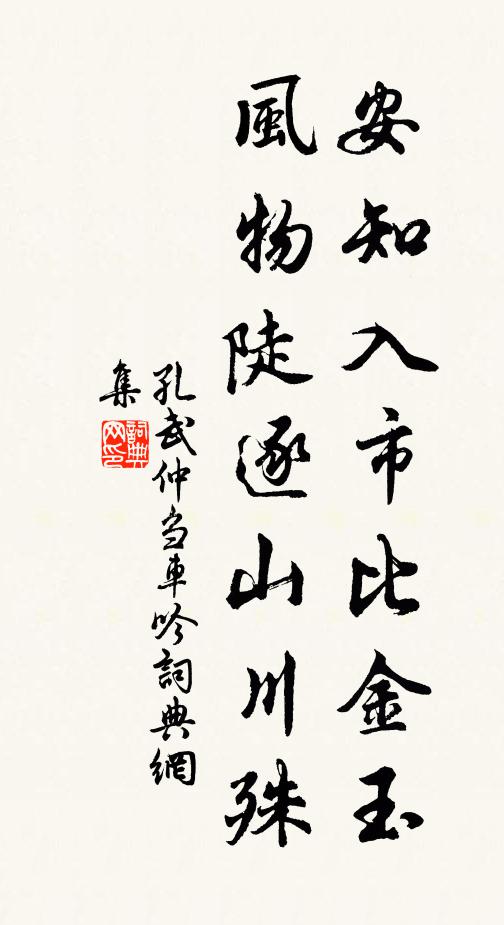 安知入市比金玉
風物陡逐山川殊
孔武仲刍車吟詞典網
集
詞典
网印